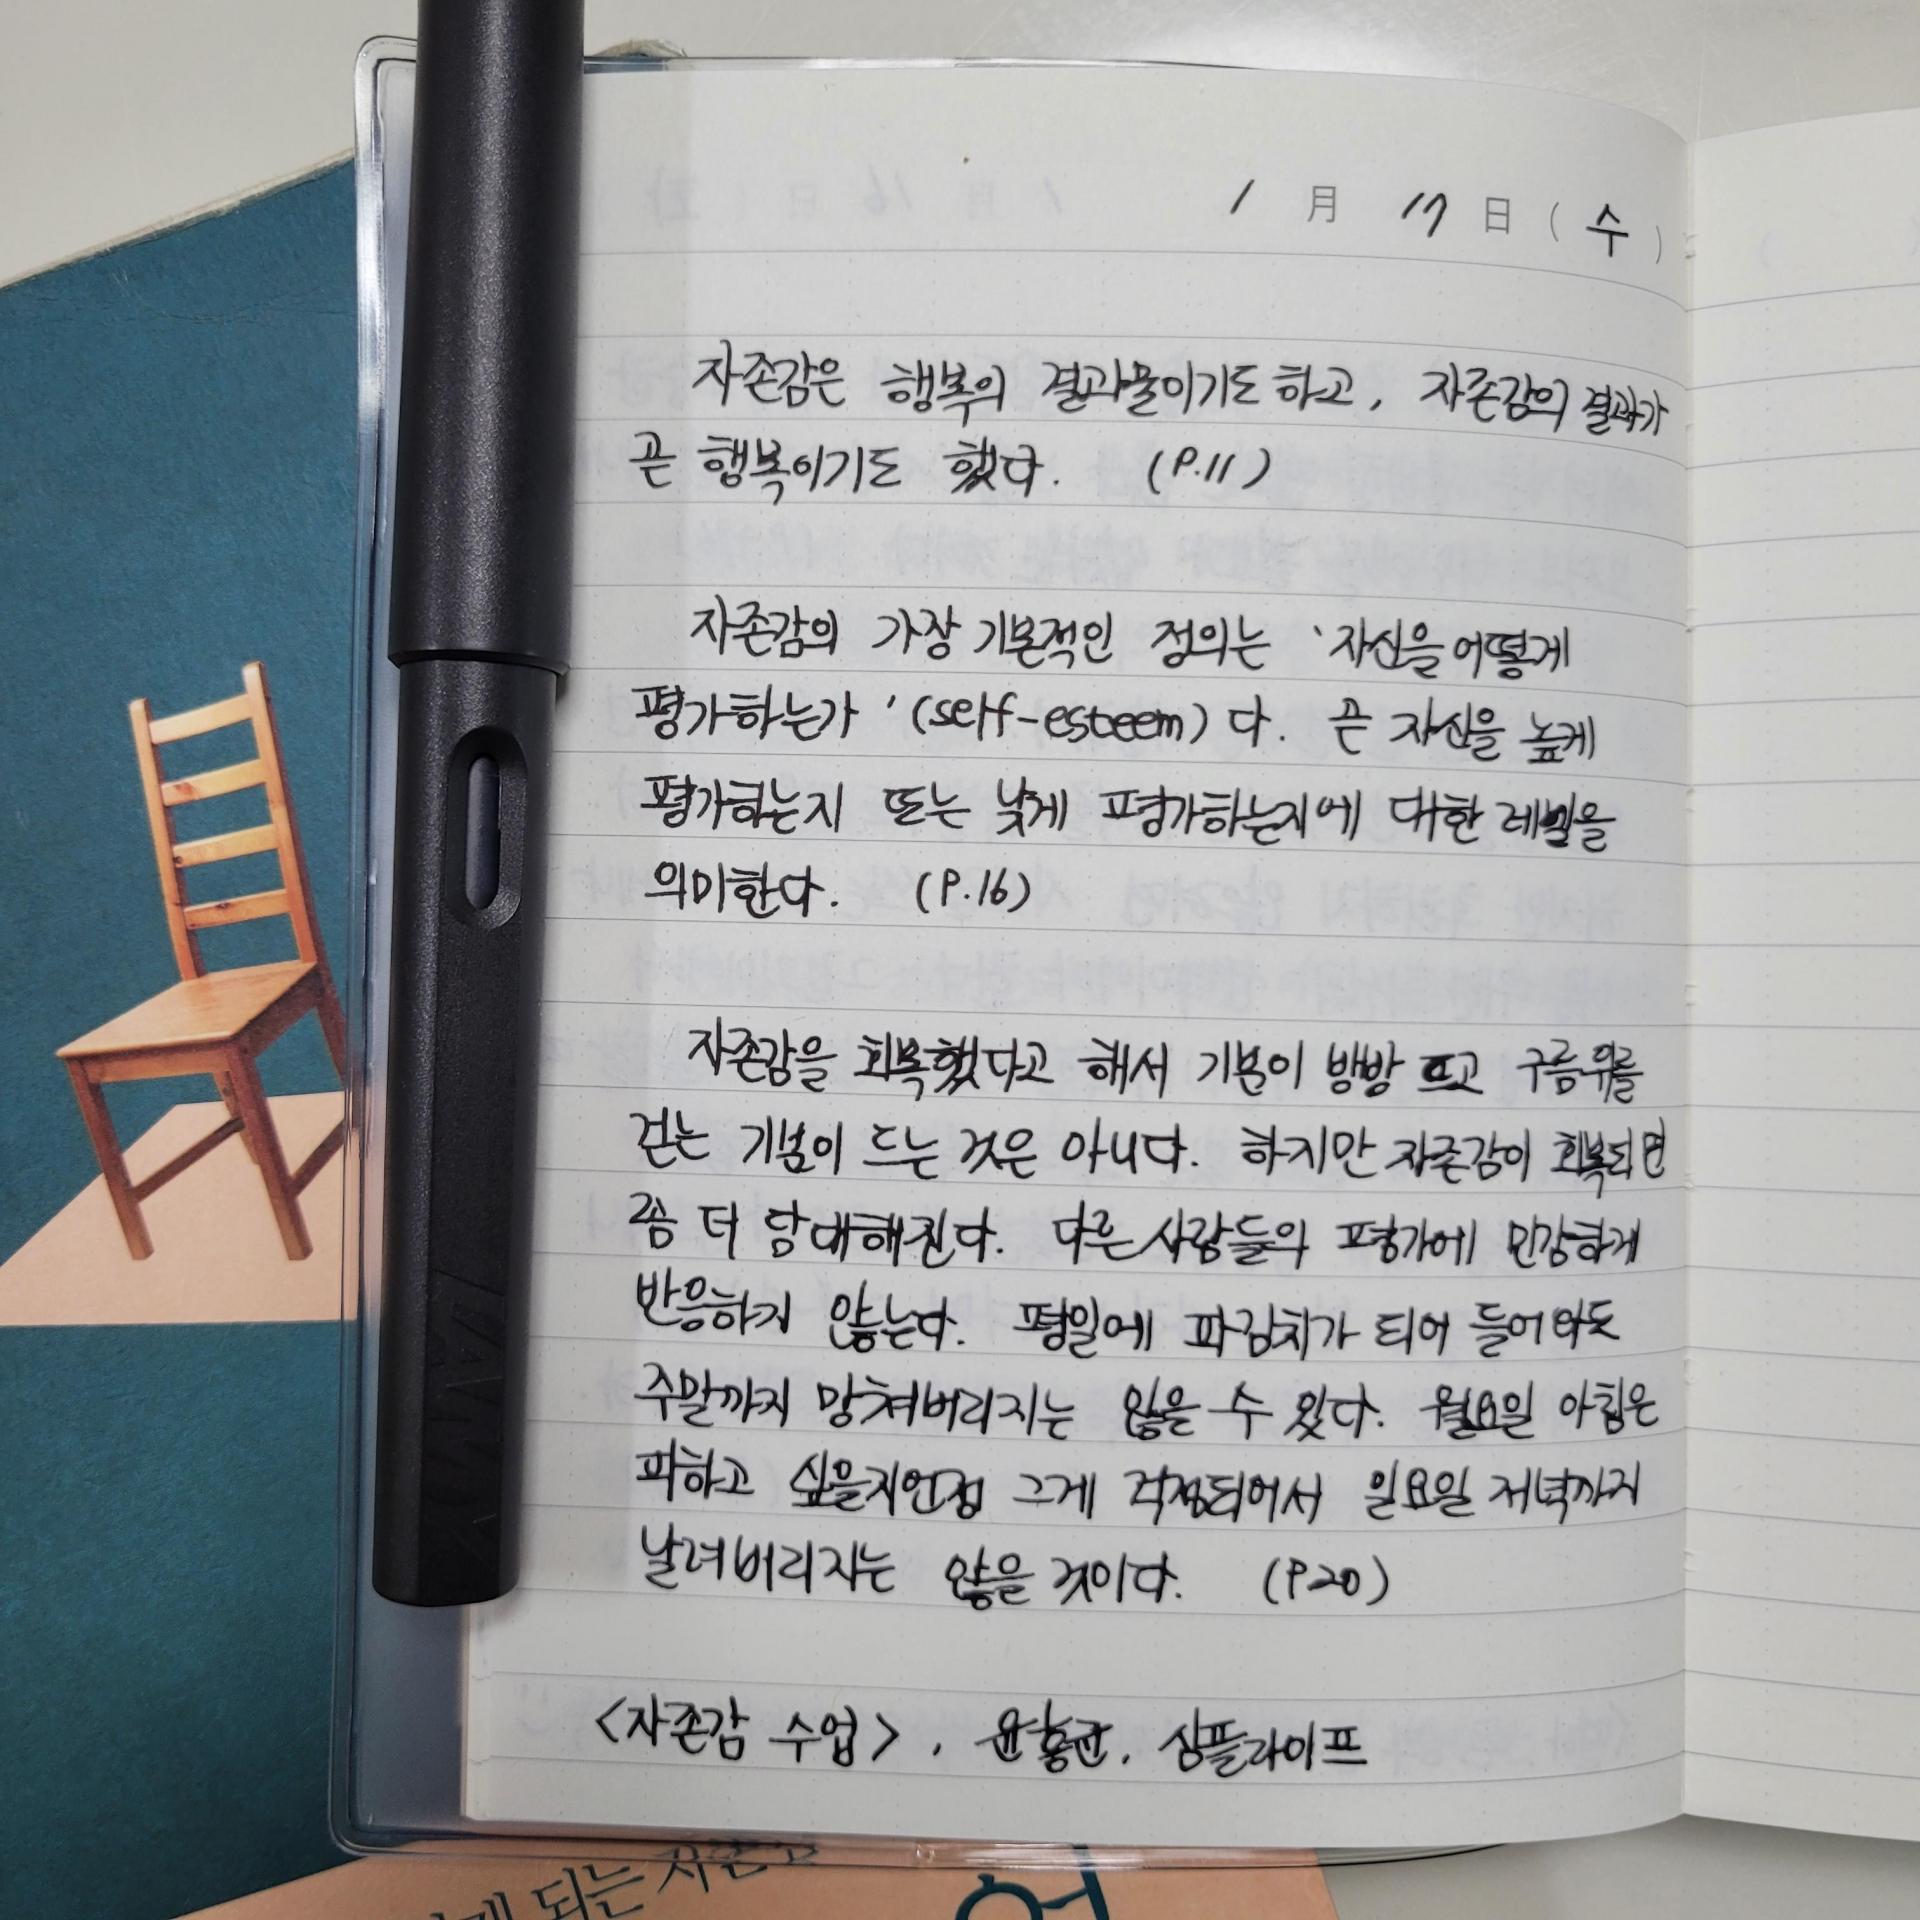 1 月 17 日 (수)
자존감은 행복의 결과물이기도 하고, 자존감의 결과가
곧 행복이기도 했다. (P.11)
자존감의 가장 기본적인 정의는 '자신을 어떻게
평가하는가'(self-esteem)다. 곧 자신을 높게
평가하는지 또는 낮게 평가하는지에 대한 레벨을
의미한다. (P.16)
자존감을 회복했다고 해서 기분이 방방 뜨고 구름 위를
걷는 기분이 드는 것은 아니다. 하지만 자존감이 회복되면
좀 더 담대해진다. 다른 사람들의 평가에 민감하게
반응하지 않는다. 평일에 파김치가 되어 들어와도
주말까지 망쳐버리지는 않을 수 있다. 월요일 아침은
피하고 싶을지언정 그게 걱정되어서 일요일 저녁까지
날려버리지는 않을 것이다. (P20)
<자존감 수업>, 윤홍균, 심플라이프
LAMY
되는